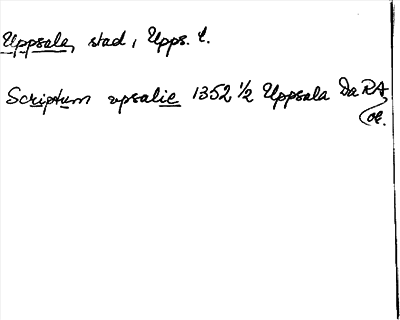 Uppsala, stad, Upps. l.
Scriptum upsalie 1352 1/2 Uppsala Da RA
or.